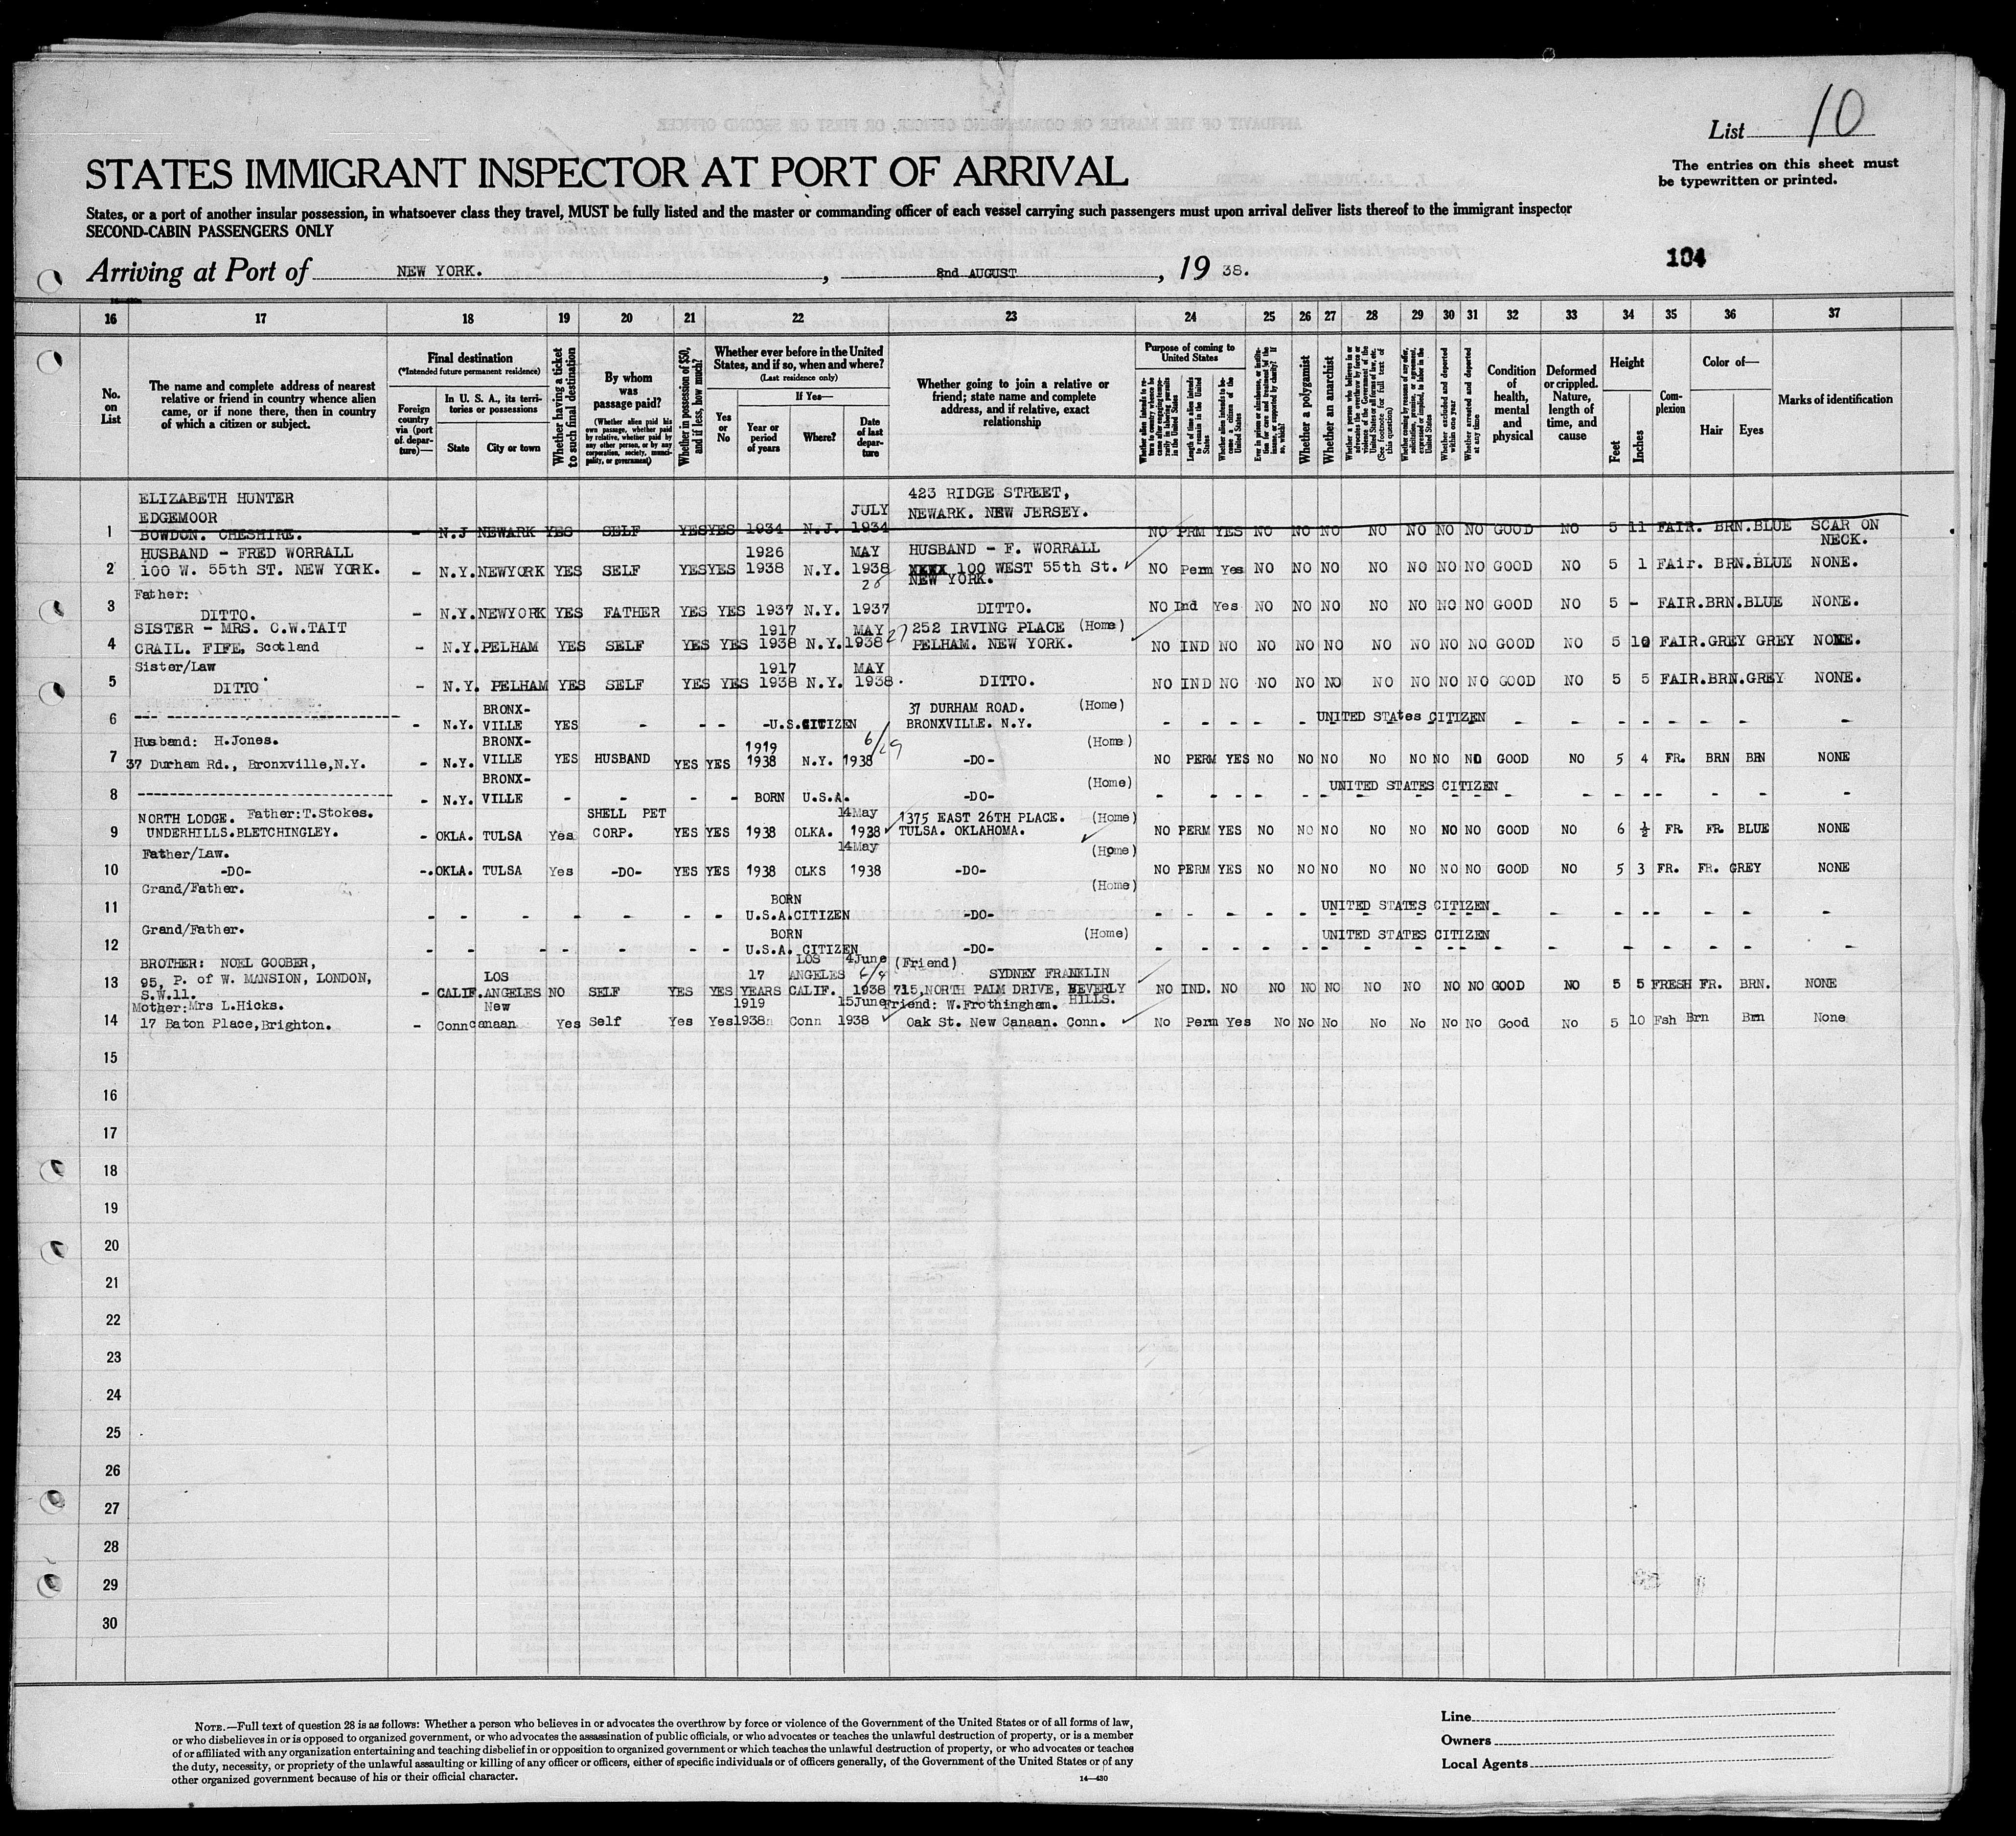 List 10
The entries on this sheet must
be typewritten or printed.
STATES IMMIGRANT INSPECTOR AT PORT OF ARRIVAL
States, or a port of another insular possession, in whatsoever class they travel, MUST be fully listed and the master or commanding officer of each vessel carrying such passengers must upon arrival deliver lists thereof to the immigrant inspector
SECOND-CABIN PASSENGERS ONLY
104
Arriving at Port of NEW YORK. , 2nd AUGUST , 19 38.
16 17 18 19 20 21 22 23 24 25 26 27 28 29 30 31 32 33 34 35 36 37
No. on List
The name and complete address of nearest
relative or friend in country whence alien
came, or if none there, then in country
of which a citizen or subject.
Final destination
(*Intended future permanent residence)
Foreign country via (port of departure)—
In U. S. A., its territories or possessions
State
City or town
Whether having a ticket to such final destination
By whom was passage paid?
(Whether alien paid his own passage, whether paid by relative, whether paid by any other person, or by any corporation, society, municipality, or government)
Whether in possession of $50, and if less, how much?
Whether ever before in the United
States, and if so, when and where?
(Last residence only)
Yes or No
If Yes—
Year or period of years
Where?
Date of last departure
Whether going to join a relative or
friend; state name and complete
address, and if relative, exact
relationship
Purpose of coming to United States
Whether alien intends to return to country whence he came after engaging temporarily in laboring pursuits in the United States
Length of time alien intends to remain in the United States
Whether alien intends to become a citizen of the United States
Ever in prison or almshouse, or institution for care and treatment of the insane, or supported by charity? If so, which?
Whether a polygamist
Whether an anarchist
Whether a person who believes in or advocates the overthrow by force or violence of the Government of the United States or all forms of law, etc. (See footnote for full text of this question)
Whether coming by reason of any offer, solicitation, promise, or agreement, expressed or implied, to labor in the United States
Whether excluded and deported within one year
Whether arrested and deported at any time
Condition of health, mental and physical
Deformed or crippled. Nature, length of time, and cause
Height
Feet
Inches
Complexion
Color of—
Hair
Eyes
Marks of identification
ELIZABETH HUNTER 423 RIDGE STREET,
EDGEMOOR JULY NEWARK. NEW JERSEY.
1 BOWDON. CHESHIRE. - N.J NEWARK YES SELF YES YES 1934 N.J. 1934 NO PRM YES NO NO NO NO NO NO NO GOOD NO 5 11 FAIR. BRN. BLUE SCAR ON
NECK.
HUSBAND - FRED WORRALL 1926 MAY HUSBAND - F. WORRALL
2 100 W. 55th ST. NEW YORK. - N.Y. NEWYORK YES SELF YES YES 1938 N.Y. 1938 100 WEST 55th St. NO Perm Yes NO NO NO NO NO NO NO GOOD NO 5 1 FAir. BRN. BLUE NONE.
NEW YORK.
Father:
3 DITTO. - N.Y. NEWYORK YES FATHER YES YES 1937 N.Y. 1937 DITTO. NO Ind Yes NO NO NO NO NO NO NO GOOD NO 5 - FAIR. BRN. BLUE NONE.
SISTER - MRS. C.W.TAIT 1917 MAY 27 252 IRVING PLACE (Home)
4 CRAIL. FIFE, Scotland - N.Y. PELHAM YES SELF YES YES 1938 N.Y. 1938 PELHAM. NEW YORK. NO IND NO NO NO NO NO NO NO NO GOOD NO 5 10 FAIR. GREY GREY NONE.
Sister/Law 1917 MAY
5 DITTO - N.Y. PELHAM YES SELF YES YES 1938 N.Y. 1938. DITTO. NO IND NO NO NO NO NO NO NO NO GOOD NO 5 5 FAIR. BRN. GREY NONE.
BRONX- 37 DURHAM ROAD. (Home)
6 - N.Y. VILLE YES - - - -U.S.CITIZEN BRONXVILLE. N.Y. - - - - - UNITED STates CITIZEN - - - - - - - -
Husband: H.Jones. BRONX- 1919 6/29 (Home)
7 37 Durham Rd., Bronxville,N.Y. - N.Y. VILLE YES HUSBAND YES YES 1938 N.Y. 1938 -DO- NO PERM YES NO NO NO NO NO NO NO GOOD NO 5 4 FR. BRN BRN NONE
BRONX- (Home)
8 - N.Y. VILLE - - - - BORN U.S.A. -DO- UNITED STATES CITIZEN
NORTH LODGE. Father:T.Stokes. SHELL PET 14May 1375 EAST 26TH PLACE. (Home)
9 UNDERHILLS.BLETCHINGLEY. - OKLA. TULSA Yes CORP. YES YES 1938 OLKA. 1938 TULSA. OKLAHOMA. NO PERM YES NO NO NO NO NO NO NO GOOD NO 6 ½ FR. FR. BLUE NONE
Father/Law. 14May (Home)
10 -DO- -.OKLA. TULSA Yes -DO- YES YES 1938 OLKS 1938 -DO- NO PERM YES NO NO NO NO NO NO NO GOOD NO 5 3 FR. FR. GREY NONE
Grand/Father. (Home)
BORN
11 - - - - - - - U.S.A.CITIZEN -DO- UNITED STATES CITIZEN
Grand/Father. BORN (Home)
12 - - - - - - - U.S.A. CITIZEN -DO- UNITED STATES CITIZEN
BROTHER: NOEL GOOBER, LOS 4June (Friend)
95, P. of W. MANSION, LONDON, LOS 17 ANGELES 6/4 SYDNEY FRANKLIN
13 S.W.11. - CALIF. ANGELES NO SELF YES YES YEARS CALIF. 1938 715,NORTH PALM DRIVE, BEVERLY NO IND. NO NO NO NO NO NO NO NO GOOD NO 5 5 FRESH FR. BRN. NONE
HILLS.
Mother:Mrs L.Hicks. New 1919 15June Friend: W.Frothingham.
14 17 Baton Place,Brighton. - Conn canaan Yes Self Yes Yes 1938 Conn 1938 Oak St. New Canaan. Conn. No Perm Yes No No No No No No No Good No 5 10 Fsh Brn Brn None
15
16
17
18
19
20
21
22
23
24
25
26
27
28
29
30
NOTE.—Full text of question 28 is as follows: Whether a person who believes in or advocates the overthrow by force or violence of the Government of the United States or of all forms of law,
or who disbelieves in or is opposed to organized government, or who advocates the assassination of public officials, or who advocates or teaches the unlawful destruction of property, or is a member
of or affiliated with any organization entertaining and teaching disbelief in or opposition to organized government or which teaches the unlawful destruction of property, or who advocates or teaches
the duty, necessity, or propriety of the unlawful assaulting or killing of any officer or officers, either of specific individuals or of officers generally, of the Government of the United States or of any
other organized government because of his or their official character.
14—430
Line
Owners
Local Agents